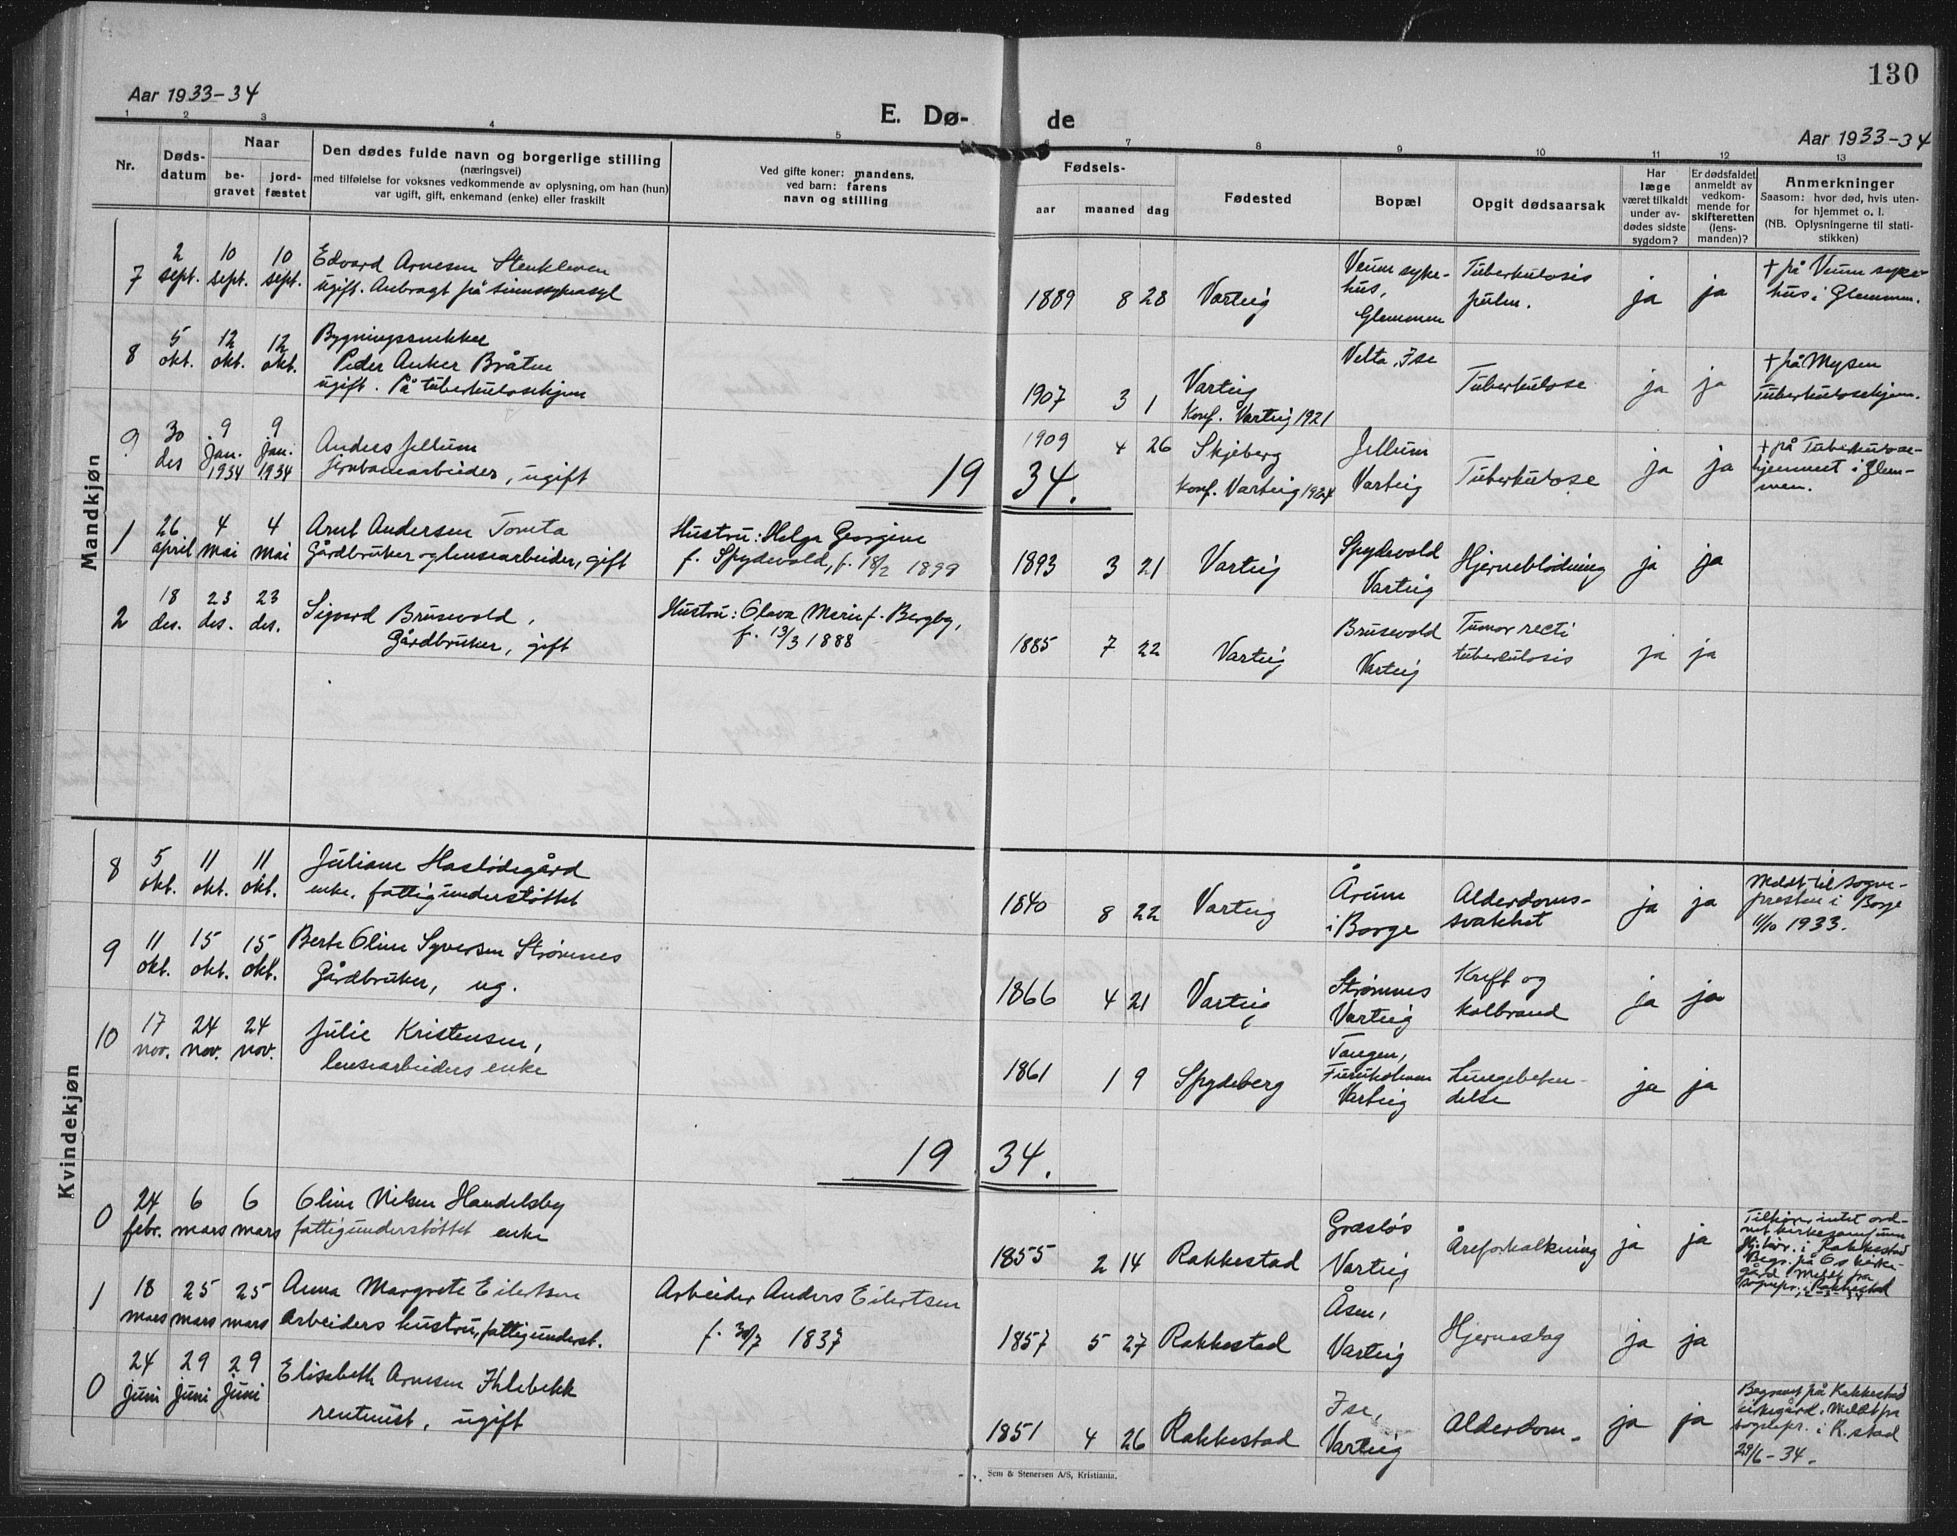 130
Aar 1933-34
E. Dø-
de
Aar 1933-34
1 2 3 4 5 6 7 8 9 10 11 12 13
Nr.
Døds-
datum
Naar
be-
gravet
jord-
fæstet
Den dødes fulde navn og borgerlige stilling
(næringsvei)
med tilføielse for voksnes vedkommende av oplysning, om han (hun)
var ugift, gift, enkemand (enke) eller fraskilt
Ved gifte koner: mandens,
ved barn: farens
navn og stilling
Fødsels-
aar maaned dag
Fødested
Bopæl
Opgit dødsaarsak
Har
læge
været tilkaldt
under av-
dødes sidste
sygdom?
Er dødsfaldet
anmeldt av
vedkom-
mende for
skifteretten
(lens-
manden)?
Anmerkninger
Saasom: hvor død, hvis uten-
for hjemmet o. l.
(NB. Oplysningerne til stati-
stikken)
Mandkjøn
7
2 sept.
10 sept.
10 sept.
Edvard Arnesen Stenkleven
ugift. Anbragt på sinnssykeasyl
1889 8 28
Varteig
Veum syke-
hus,
Glemmen
Tuberkulosis
pulm.
ja ja
+ på Veum syke-
hus i Glemmen.
8
5 okt.
12 okt.
12 okt.
Bygningssnekker
Peder Anker Bråten
ugift. På tuberkulosehjem
1907 3 1
Varteig
Konf. Varteig 1921
Velta, Ise
Tuberkulose
ja ja
+ på Mysen
Tuberkulosehjem.
9
30 des
9 Jan. 1934
9 Jan. 1934
Anders Jellum
Jernbanearbeider, ugift
1909 4 26
Skjeberg
Konf. Varteig 1924
Jellum
Varteig
Tuberkulose
ja ja
+ på Tuberkulose-
hjemmet i Glem-
men.
19 34.
1
26 april
4 mai
4 mai
Arnt Andersen Toveta
Gårdbruker og lensearbeider, gift
Hustru: Helga Georgine
f. Spydevold, f. 18/2 1899
1893 3 21
Varteig
Spydevold
Varteig
Hjerneblødning
ja ja
2
18 des.
23 des.
23 des.
Sigvard Brusevold,
Gårdbruker, gift
Hustru: Olava Marie f. Bergby,
f. 13/3 1888
1885 7 22
Varteig
Brusevold
Varteig
Tumor recti
tuberkulosis
ja ja
Kvindekjøn
8
5 okt.
11 okt.
11 okt.
Juliane Haslødegård
enke. fattigunderstøttet
1840 8 22
Varteig
Årum
i Borge
Alderdoms-
svakhet
ja ja
Meldt til sogne-
presten i Borge
11/10 1933.
9
11 okt.
15 okt.
15 okt.
Berte Oline Syversen Strømnes
Gårdbruker, ug.
1866 4 21
Varteig
Strømnes
Varteig
Kreft og
kolbrand
ja ja
10
17 nov.
24 nov.
24 nov.
Julie Kristensen,
lensearbeiders enke
1861 1 9
Spydeberg
Tangen,
Furuholmen
Varteig
Lungebeten-
delse
ja ja
19 34.
0
24 febr.
6 mars
6 mars
Oline Nilsen Handelsby
fattigunderstøttet enke
1855 2 14
Rakkestad
Græsløs
Varteig
Åreforkalkning
ja ja
Tilhører intet ord-
net kirkesamfunn
i Rakkestad
Begr. på Os kirke-
gård. Meldt fra
sognepr. i Rakkestad
1
18 mars
25 mars
25 mars
Anna Margrete Eilertsen
Arbeiders hustru, fattigunderst.
Arbeider Anders Eilertsen
f. 30/7 1837
1857 5 27
Rakkestad
Åsen,
Varteig
Hjerneslag
ja ja
0
24 juni
29 juni
29 juni
Elisabeth Arnesen Ihlebekk
rentenist, ugift
1851 4 26
Rakkestad
Ise,
Varteig
Alderdom.
ja ja
Begravet på Rakkestad
kirkegård. Meldt fra
sognepr. i R.stad
29/6-34.
Sem & Stenersen A/S, Kristiania.